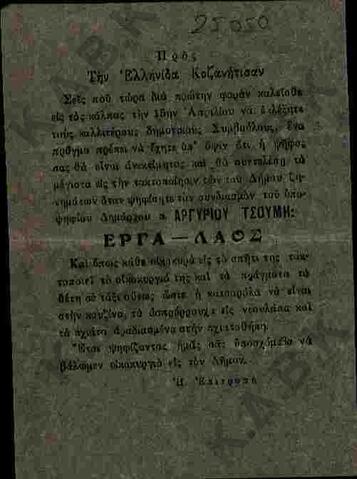 25050
Πρὸς
Τὴν Ἑλληνίδα Κοζανήτισαν
Σεῖς ποῦ τώρα διὰ πρώτην φορὰν καλεῖσθε
εἰς τὰς κάλπας τὴν 15ην Ἀπριλίου νὰ ἐκλέξητε
τοὺς καλλιτέρους δημοτικοὺς Συμβούλους, ἕνα
πρᾶγμα πρέπει νὰ ἔχητε ὑπ' ὄψιν ὅτι ἡ ψῆφος
σας θὰ εἶναι ἀνεκτίμητος καὶ θὰ συντελέσῃ τὰ
μέγιστα εἰς τὴν τακτοποίησιν τῶν τοῦ Δήμου ζη-
τημάτων ὅταν ψηφίσητε τὸν συνδυασμὸν τοῦ ὑπο-
ψηφίου Δημάρχου κ. ΑΡΓΥΡΙΟΥ ΤΣΟΥΜΗ:
ΕΡΓΑ — ΛΑΟΣ
Καὶ ὅπως κάθε οἰκοκυρὰ εἰς τὸ σπῆτι της τακ-
τοποιεῖ τὸ οἰκοκυργιό της καὶ τὰ πράγματα τὰ
θέτη σὲ τάξι οὕτως ὥστε ἡ κατσαρόλα νὰ εἶναι
στὴν κουζίνα, τὰ ἀσπρόρρουχα εἰς ντουλάπα καὶ
τὰ πχιάτα ἀραδιασμένα στὴν πχιατοθήκη.
Ἔτσι ψηφίζοντας ἡμᾶς σᾶς ὑποσχόμεθα νὰ
βάλωμεν οἰκοκυργιὸ εἰς τὸν Δῆμον.
Ἡ Ἐπιτροπὴ
Κ.Α.Β.Κ